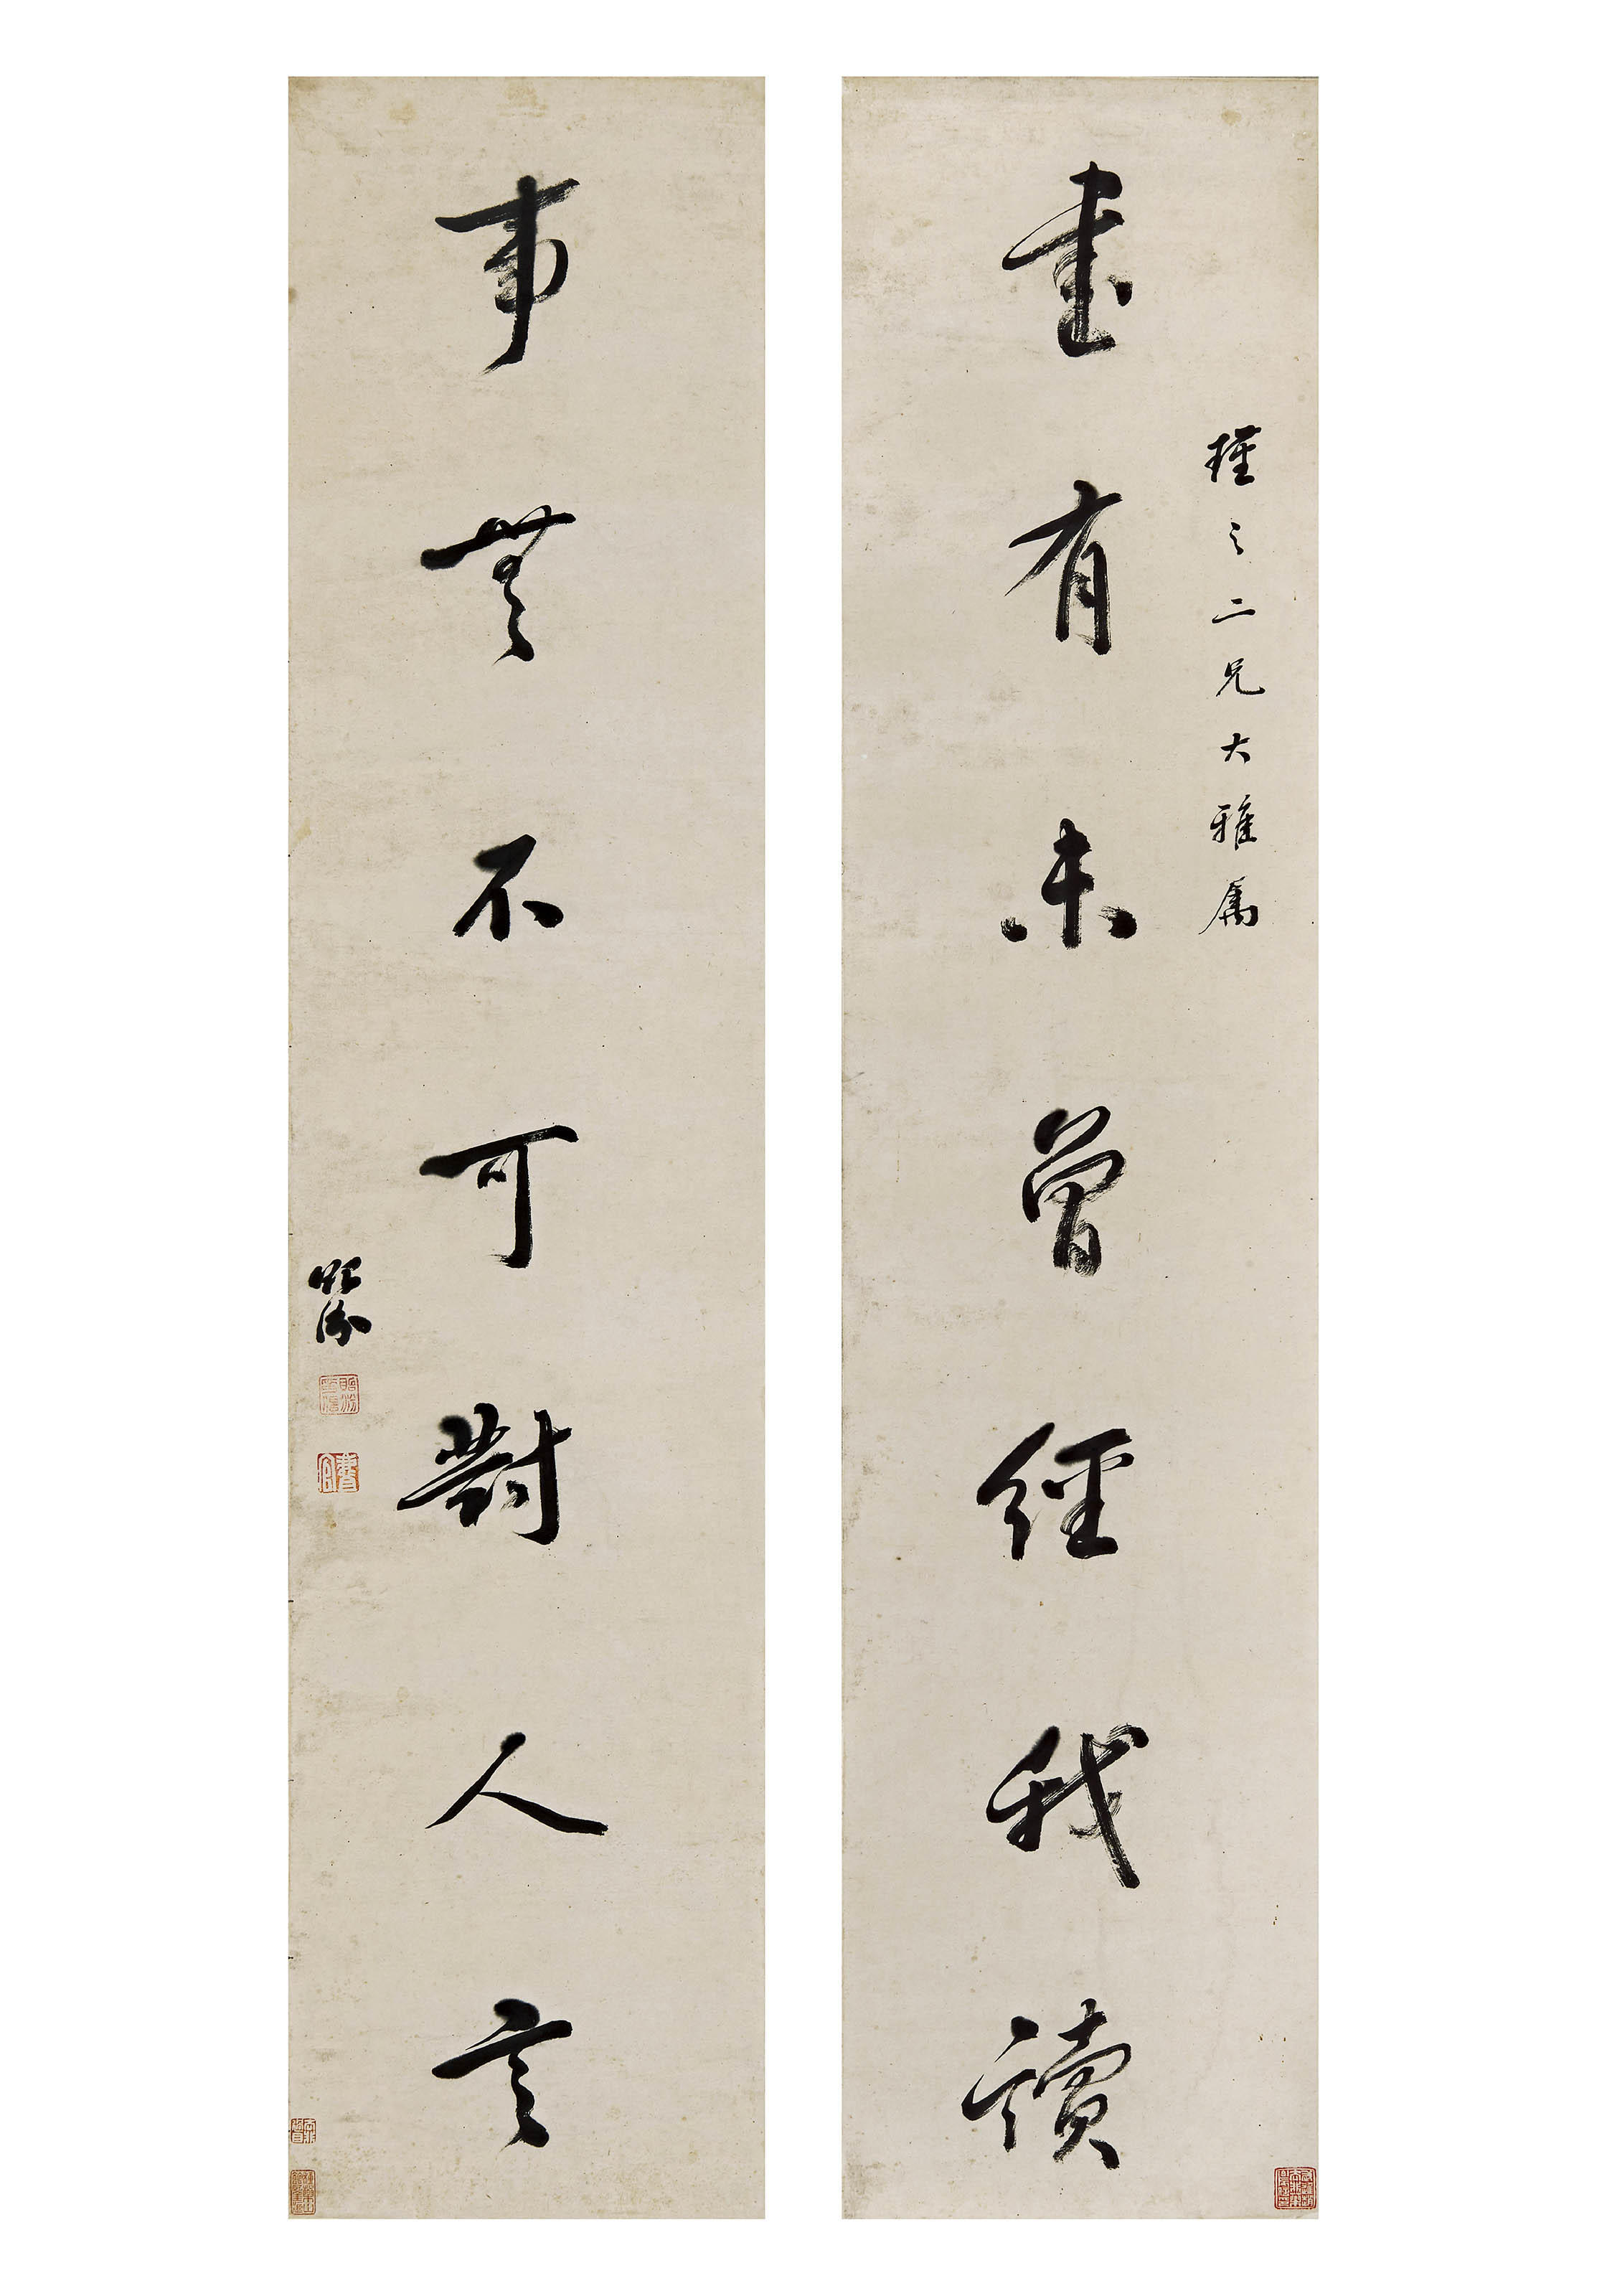 書有未曾經我讀
瑾之二兄大雅屬
事無不可對人言
貽汾